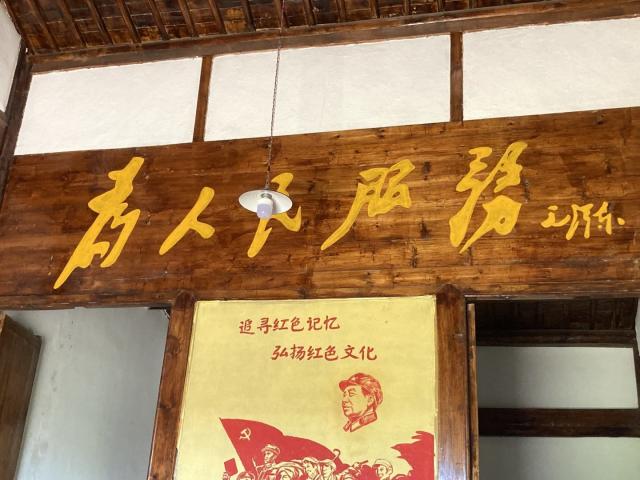 為人民服務 毛泽东
追寻红色记忆
弘扬红色文化